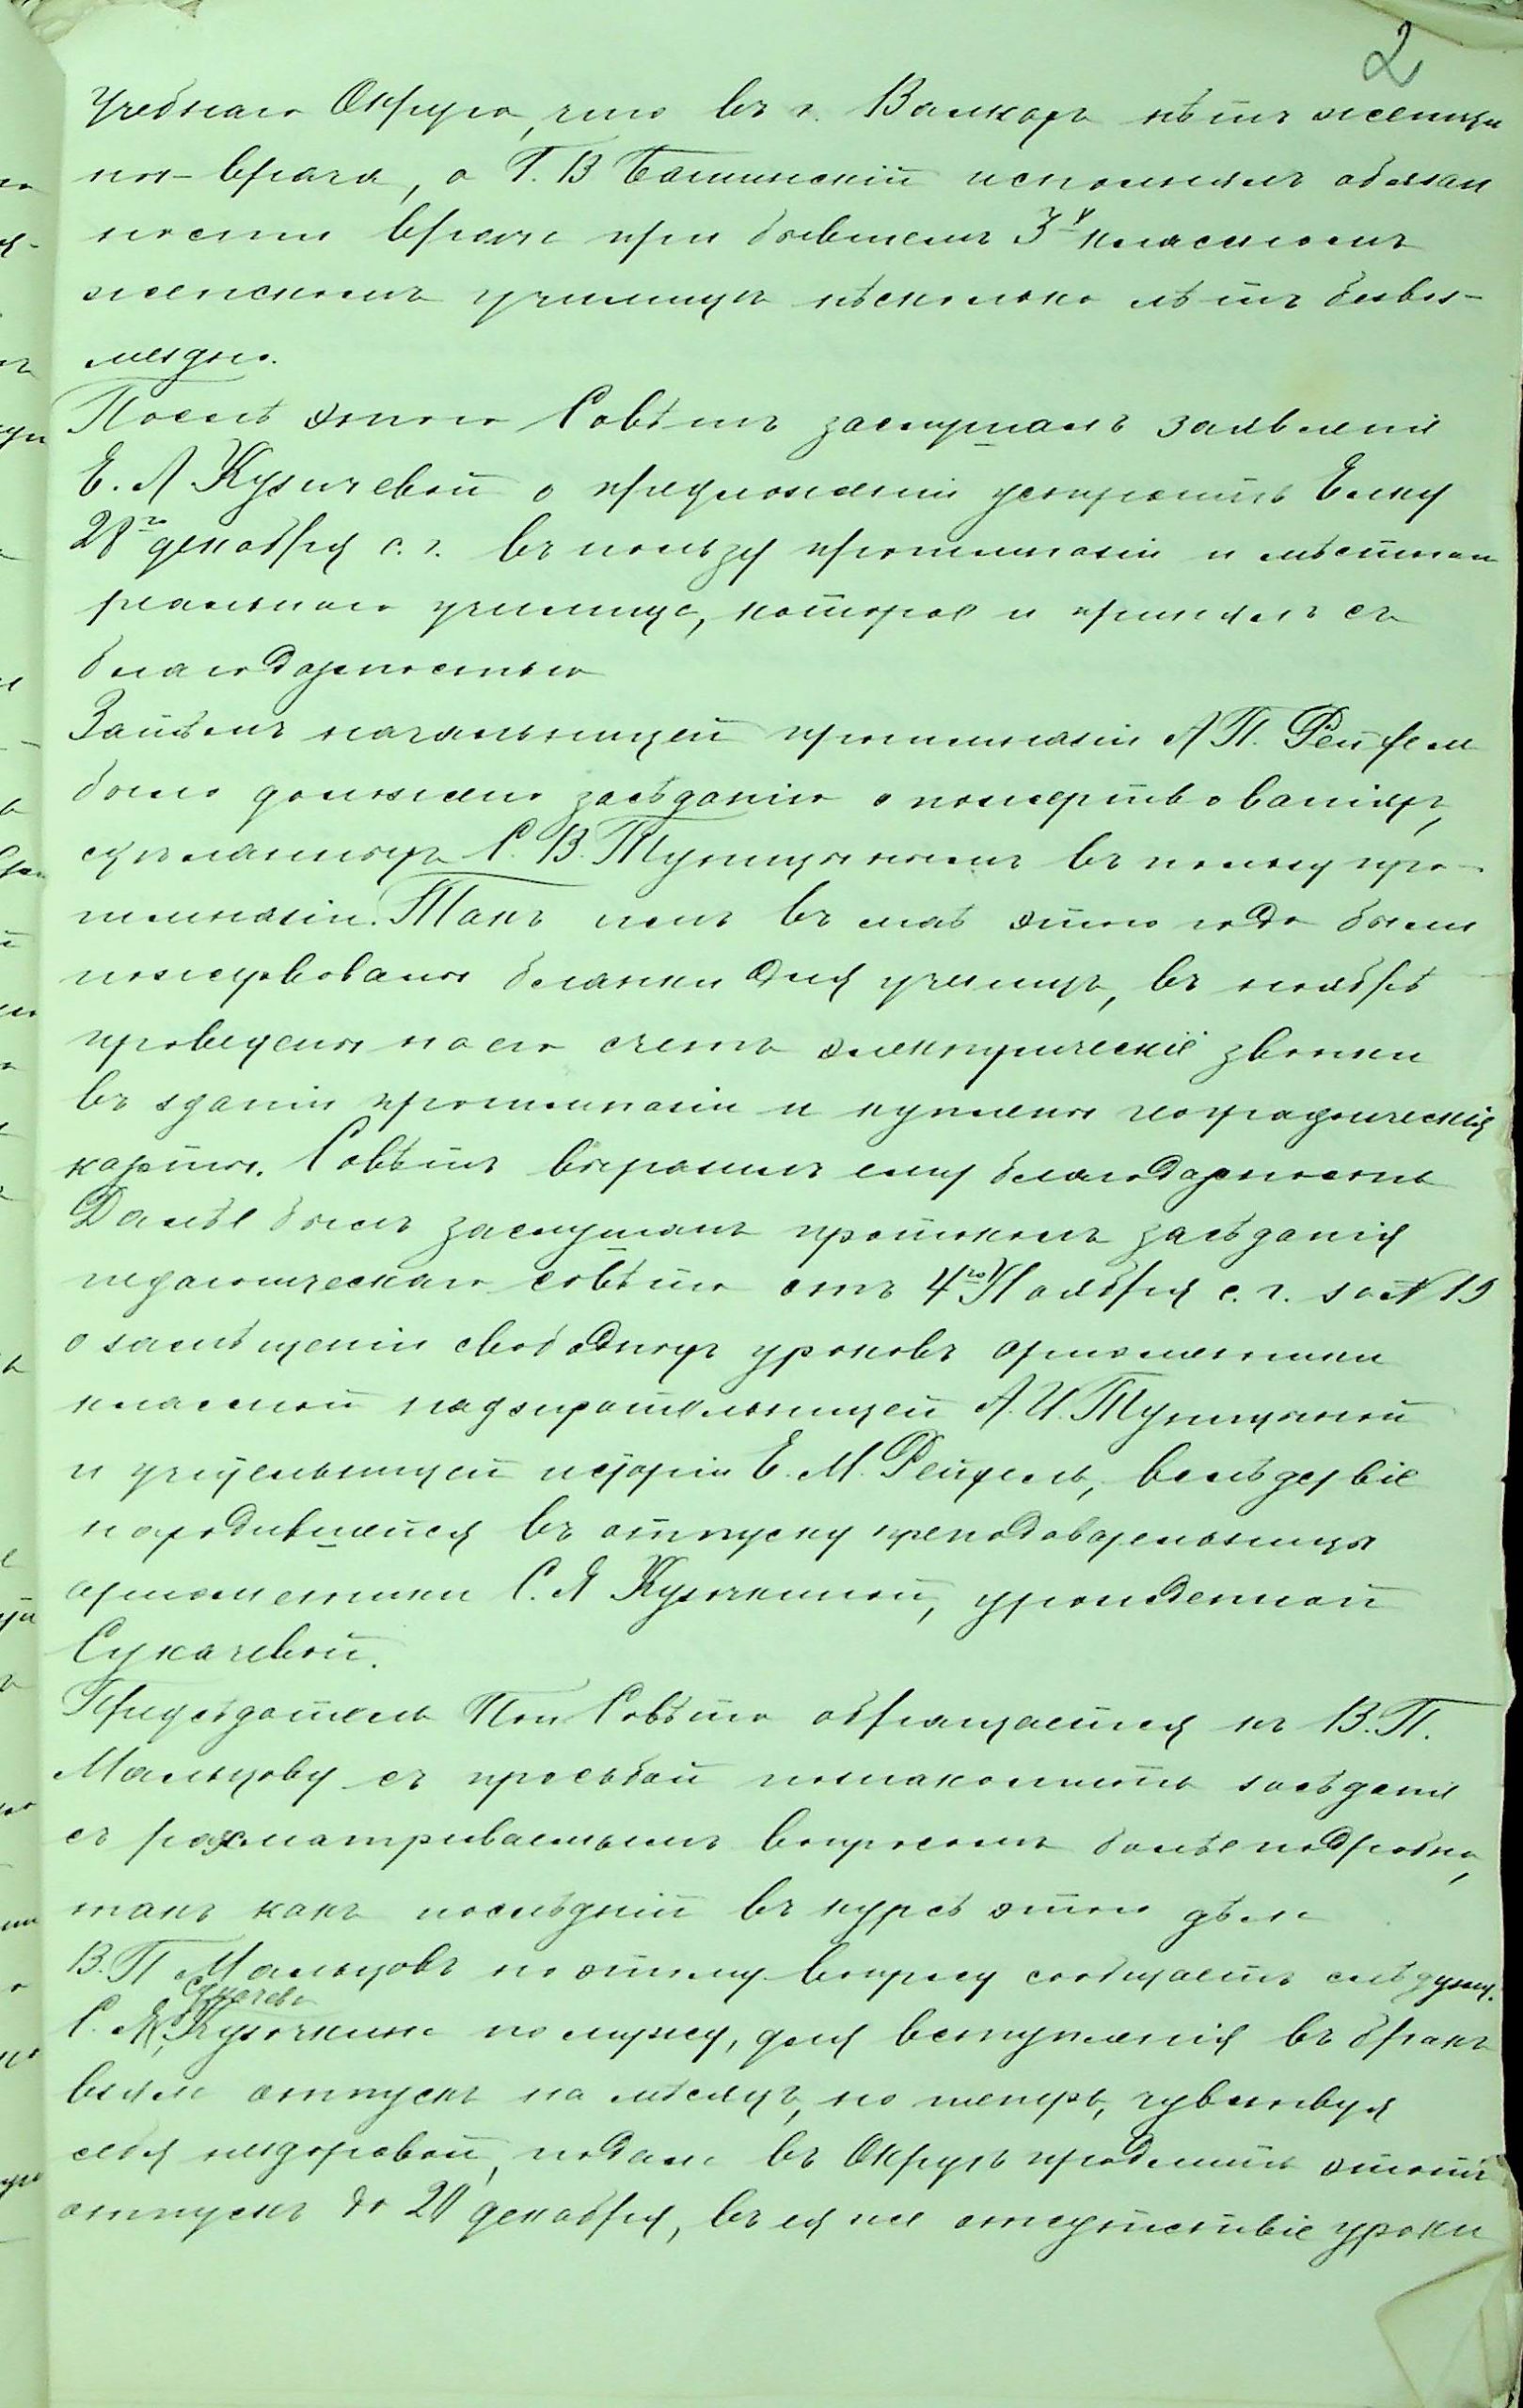 2
Учебнаго Округа, что въ г. Валкахъ нѣтъ женщи
ны-врача, а Г. В Башинскій исполнялъ обязан
ности врача при бывшемъ 3х классномъ
женскомъ училищѣ нѣсколько лѣтъ безвоз-
мездно.
Послѣ этого Совѣтъ заслушалъ заявленіе
Е. А Кузичевой о предложеніи устроить Елку
28го декабря с. г. въ пользу прогимназіи и мѣстнаго
реальнаго училища, которое и принялъ съ
благодарностью
Затѣмъ начальницей прогимназіи А П. Рейфель
было доложено засѣданію о пожертвованіяхъ,
сдѣланныхъ С. В. Тупицынымъ въ пользу про-
гимназіи. Такъ имъ въ маѣ этого года были
пожертвованы бланки для училищъ, въ ноябрѣ
проведены на его счетъ электрическіе звонки
въ зданіи прогимназіи и куплены географическія
карты. Совѣтъ выразилъ ему благодарность
Далѣе былъ заслушанъ протоколъ засѣданія
педагогическаго совѣта отъ 4го Ноября с. г. за № 19
о замѣщеніи свободныхъ уроковъ ариѳметики
классной надзирательницей А. И. Тупицыной
и учительницей исторіи Е. М. Рейфель, вслѣдствіе
находившейся въ отпуску преподавательницы
ариѳметики С. Я Курочкиной, урожденной
Сукачевой.
Предсѣдатель Поп. Совѣта обращается къ В. П.
Мальцову съ просьбой познакомить засѣданіе
съ разсматриваемымъ вопросомъ болѣе подробно,
такъ какъ послѣдній въ курсѣ этого дѣла
В. П Мальцовъ по этому вопросу сообщаетъ слѣдующ.
Сукачева
С. Я. Курочкина по мужу, для вступленія въ бракъ
взяла отпускъ на мѣсяцъ, но теперь, чувствуя
себя нездоровой, подала въ Округъ продлить этотъ
отпускъ до 20 декабря, въ ея же отсутствіе уроки